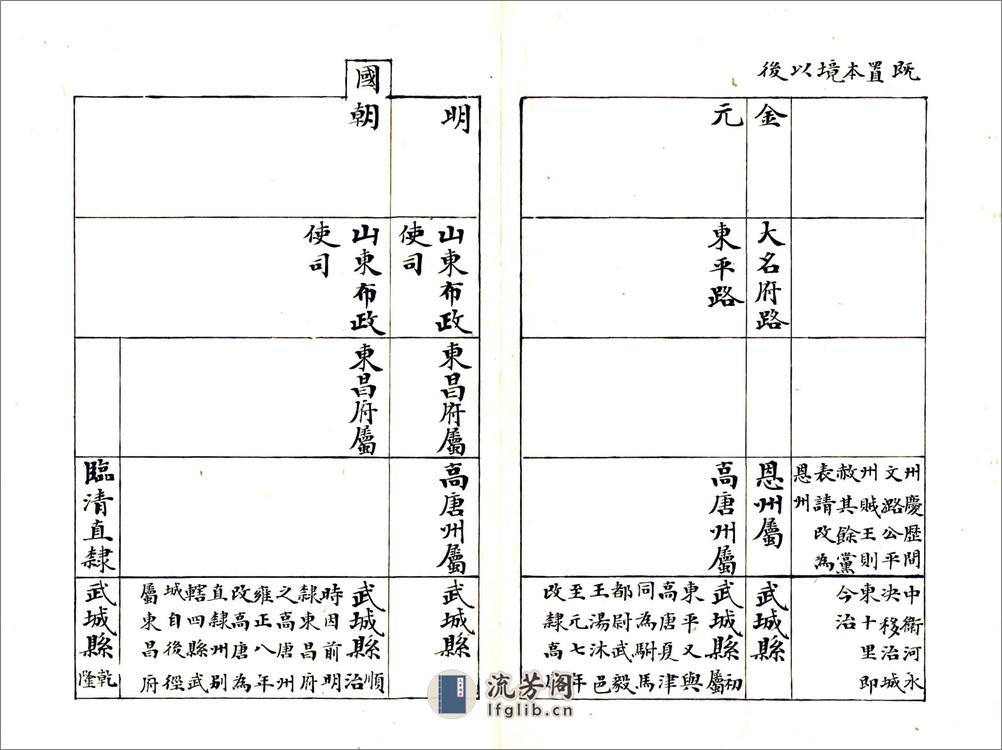 既置本境以後
州慶歷間
文潞公平
州賊王則
赦其餘黨
表請改為
恩州
中衛河永
決移治城
東十里即
今治
金
大名府路
恩州屬
武城縣
元
東平路
高唐州屬
武城縣初屬
東平又與
高唐夏津
同為駙馬
都尉武毅
王湯沐邑
至元七年
改隸高
明
山東布政
使司
東昌府屬
高唐州屬
武城縣
國朝
山東布政
使司
東昌府屬
武城縣順治
時因前明
隸東昌府
之高唐州
雍正八年
改高唐為
直隸州别
轄四縣武
城自後徑
屬東昌府
臨清直隸
武城縣乾隆
流芳阁
lfglib.cn